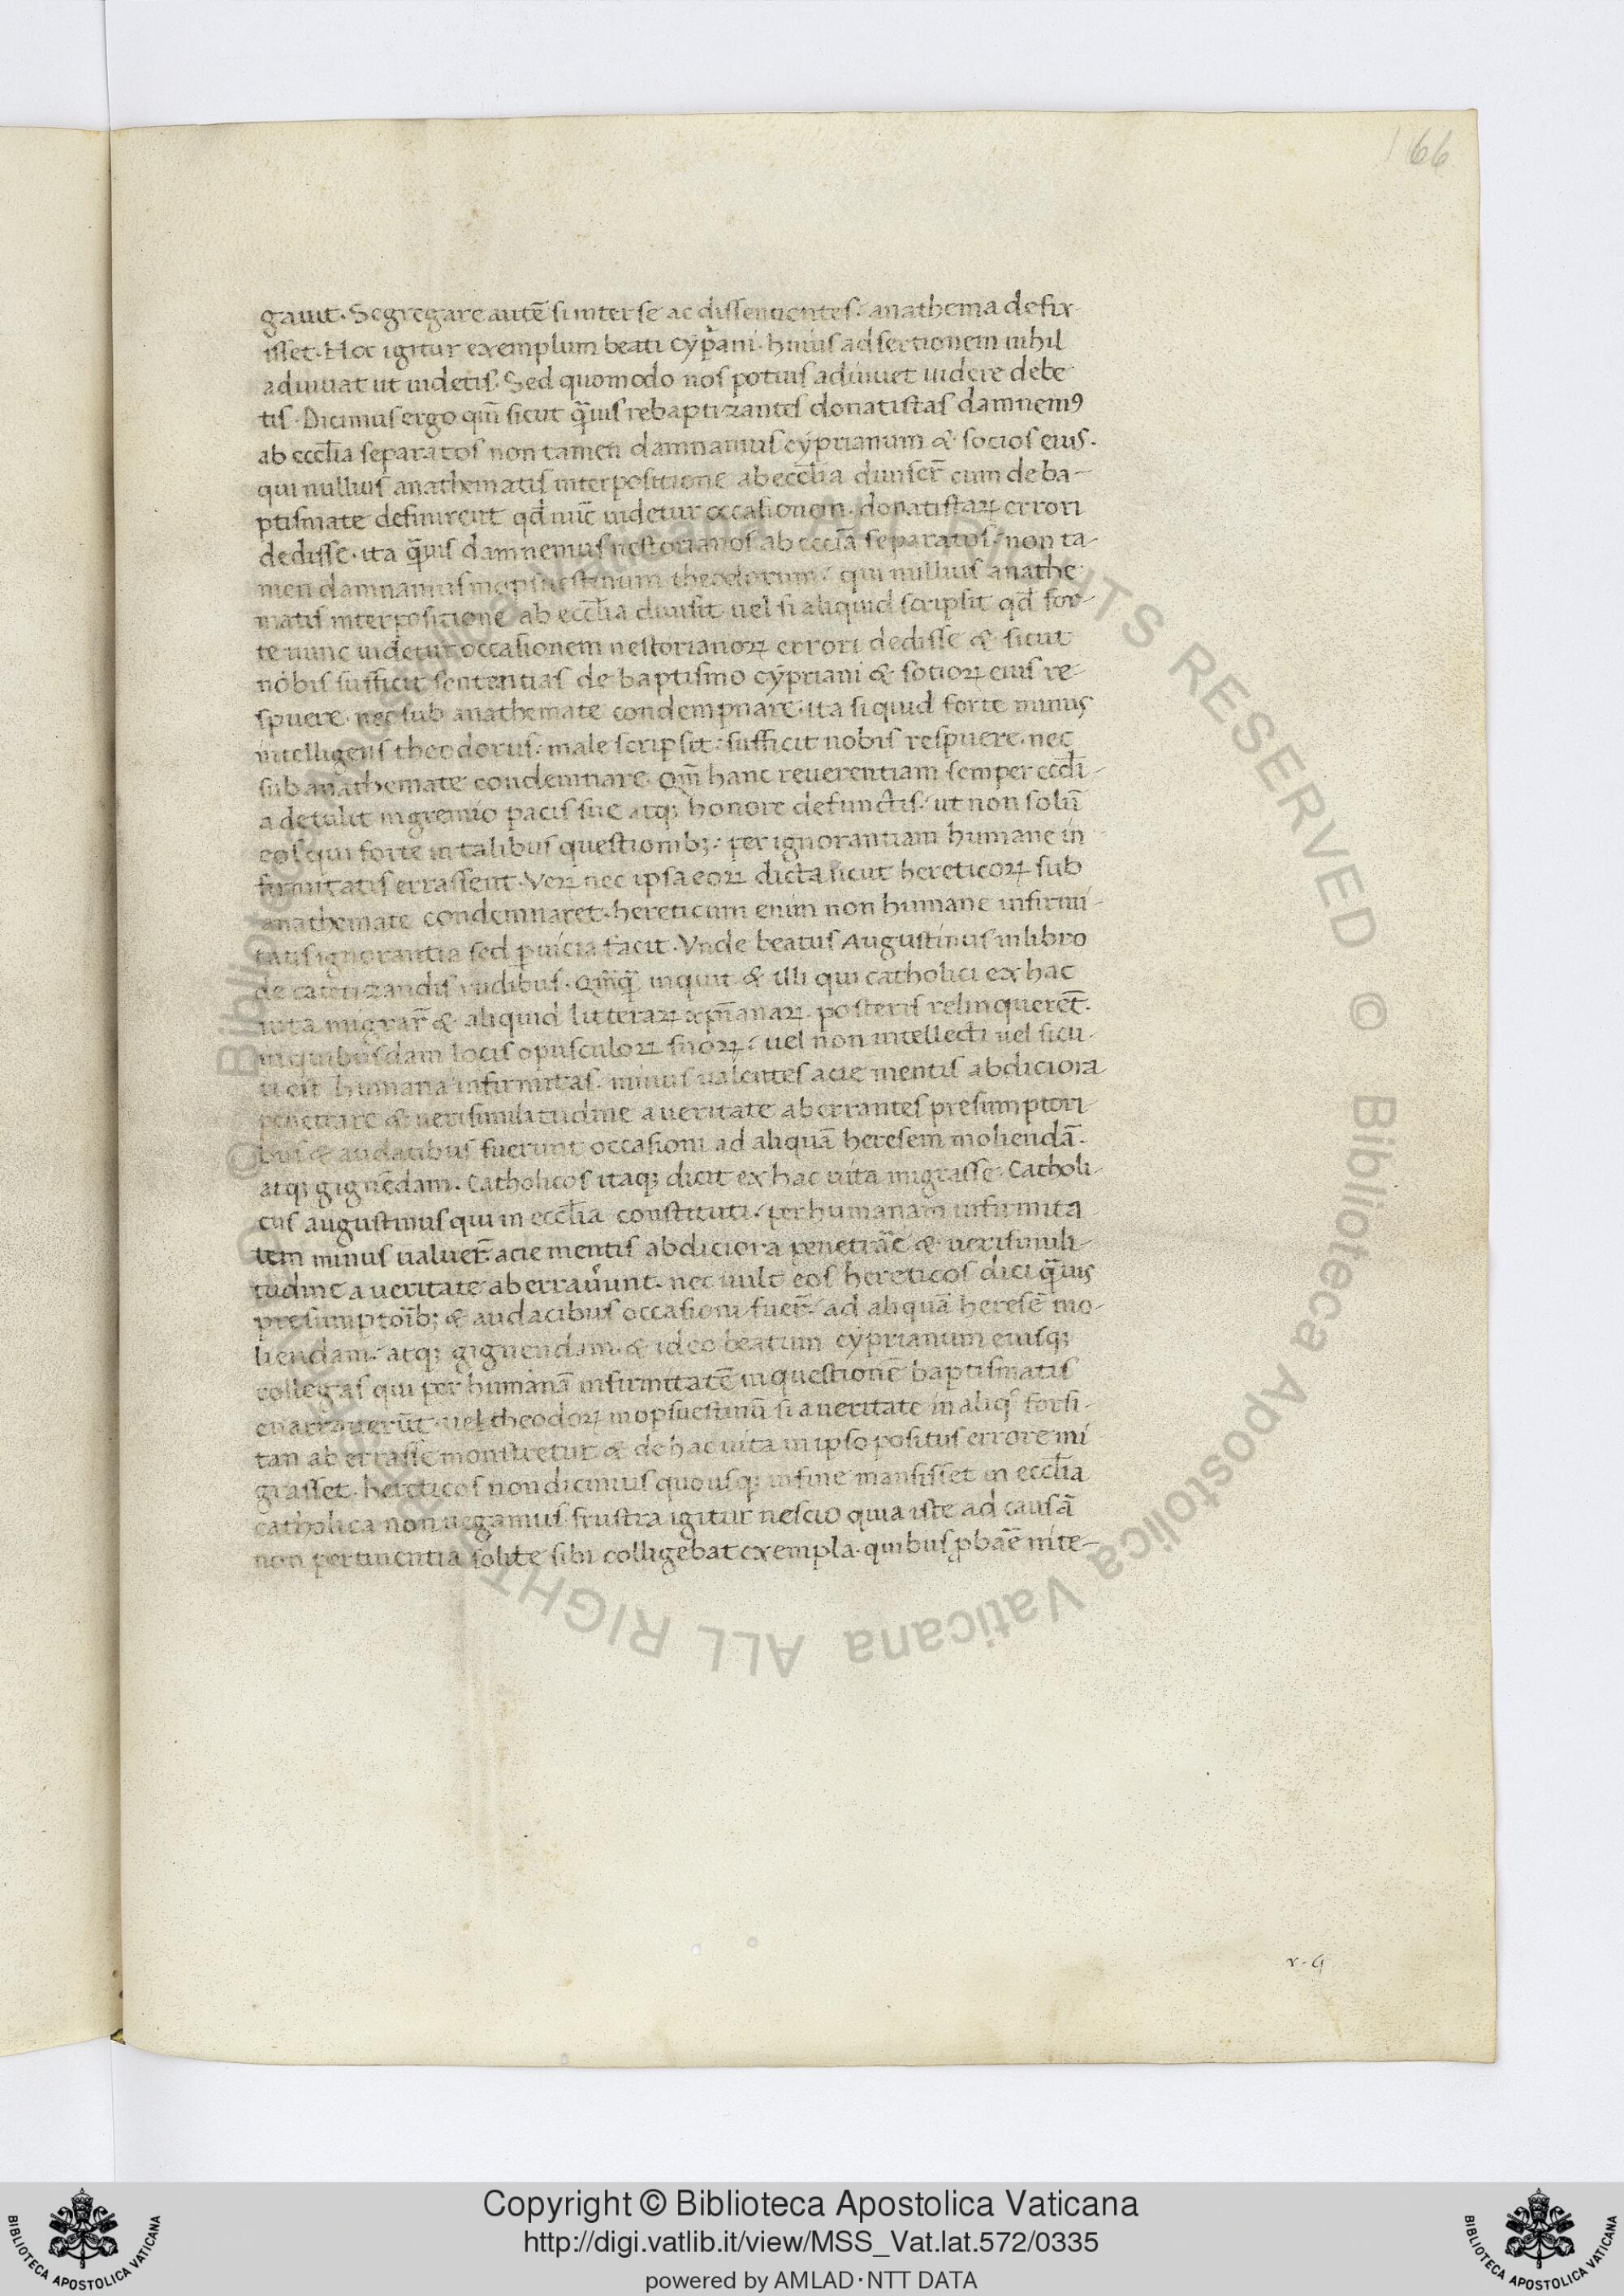 166
gauit. Segregare autē si inter se ac dissentientes. anathema defix-
isset. Hoc igitur exemplum beati cypani. huius adsertionem nihil
adiuuat ut uidetis. Sed quomodo nos potius adiuuet uidere debe
tis. Dicimus ergo qm̄ sicut q̄uis rebaptizantes donatistas damnemꝯ
ab eccl̄ia separatos non tamen damnamus cyprianum & socios eius.
qui nullius anathematis interpositione ab eccl̄ia diuiser̄ cum de ba-
ptismate definirent qd̄ nūc uidetur occasionem. donatistaꝝ errori
dedisse. ita q̄uis damnemus nestorianos ab eccl̄ia separatos. non ta-
men damnamus mopsuestinum theodorum. qui nullius anathe
matis interpositione ab eccl̄ia diuisit uel si aliquid scripsit qd̄ for-
te nunc uidetur occasionem nestorianoꝝ errori dedisse & sicut
nobis sufficit sententias de baptismo cypriani & sotioꝝ eius re-
spuere. nec sub anathemate condempnare. ita si quid forte minus
intelligens theodorus. male scripsit. sufficit nobis respuere. nec
sub anathemate condemnare. Qm̄ hanc reuerentiam semper eccl̄i-
a detulit in gremio pacis sue atq; honore defunctis. ut non solū
eos qui forte in talibus questionib;. per ignorantiam humane in
firmitatis errassent. Veꝝ nec ipsa eoꝝ dicta sicut hereticoꝝ sub
anathemate condemnaret. hereticum enim non humane infirmi-
tatis ignorantia sed ꝑuicia facit. Vnde beatus Augustinus in libro
de catetizandis rudibus. Qm̄q̄ inquit & illi qui catholici ex hac
uita migrar̄ & aliquid litteraꝝ xp̄ianaꝝ posteris relinqueret̄.
in quibusdam locis opusculoꝝ suoꝝ. uel non intellecti uel sicu-
ti est humana infirmitas. minus ualentes acie mentis abdiciora
penetrare & uerisimilitudine a ueritate aberrantes presumptori-
bus & audatibus fuerunt occasioni ad aliquā heresem moliendā.
atq; gignēdam. Catholicos itaq; dicit ex hac uita migrasse. Catholi-
cus augustinus qui in eccl̄ia constituti. per humanam infirmita
tem minus ualuer̄. acie mentis abdiciora penetrāe & uerisimili-
tudine a ueritate aberrauunt. nec uult eos hereticos dici q̄uis
presumptoib; & audacibus occasioni fuer̄. ad aliquā heresē mo-
liendam. atq; gignendam. & ideo beatum cyprianum eiusq;
collegas qui per humanā infirmitatē in questionē baptismatis
enarrauerūt. uel theodoꝝ mopsuestinū si a ueritate in aliq̄ forsi-
tan aberrasse monstretur & de hac uita in ipso positus errore mi
grasset. hereticos non dicimus quousq; in fine mansisset in eccl̄ia
catholica non negamus. frustra igitur nescio quia iste ad causā
non pertinentia solite sibi colligebat exempla. quibus ꝓbāe nite-
Copyright © Biblioteca Apostolica Vaticana
http://digi.vatlib.it/view/MSS_Vat.lat.572/0335
powered by AMLAD·NTT DATA
BIBLIOTECA APOSTOLICA VATICANA
BIBLIOTECA APOSTOLICA VATICANA
© Biblioteca Apostolica Vaticana ALL RIGHTS RESERVED